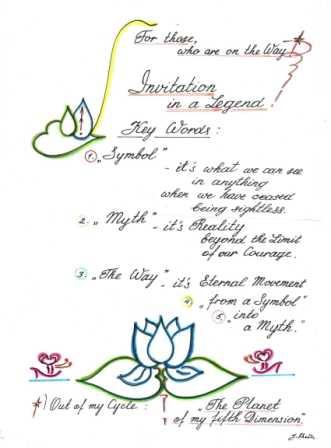 For those,
who are on the Way *)
Invitation
in a Legend!
Key Words:
1. „Symbol"
- it's what we can see
in anything
when we have ceased
being sightless.
2. „Myth" - it's Reality
beyond the Limit
of our Courage.
3. „The Way" - it's Eternal Movement
4. „from a Symbol"
5. „into
a Myth."
*) Out of my Cycle: „The Planet
of my fifth Dimension"